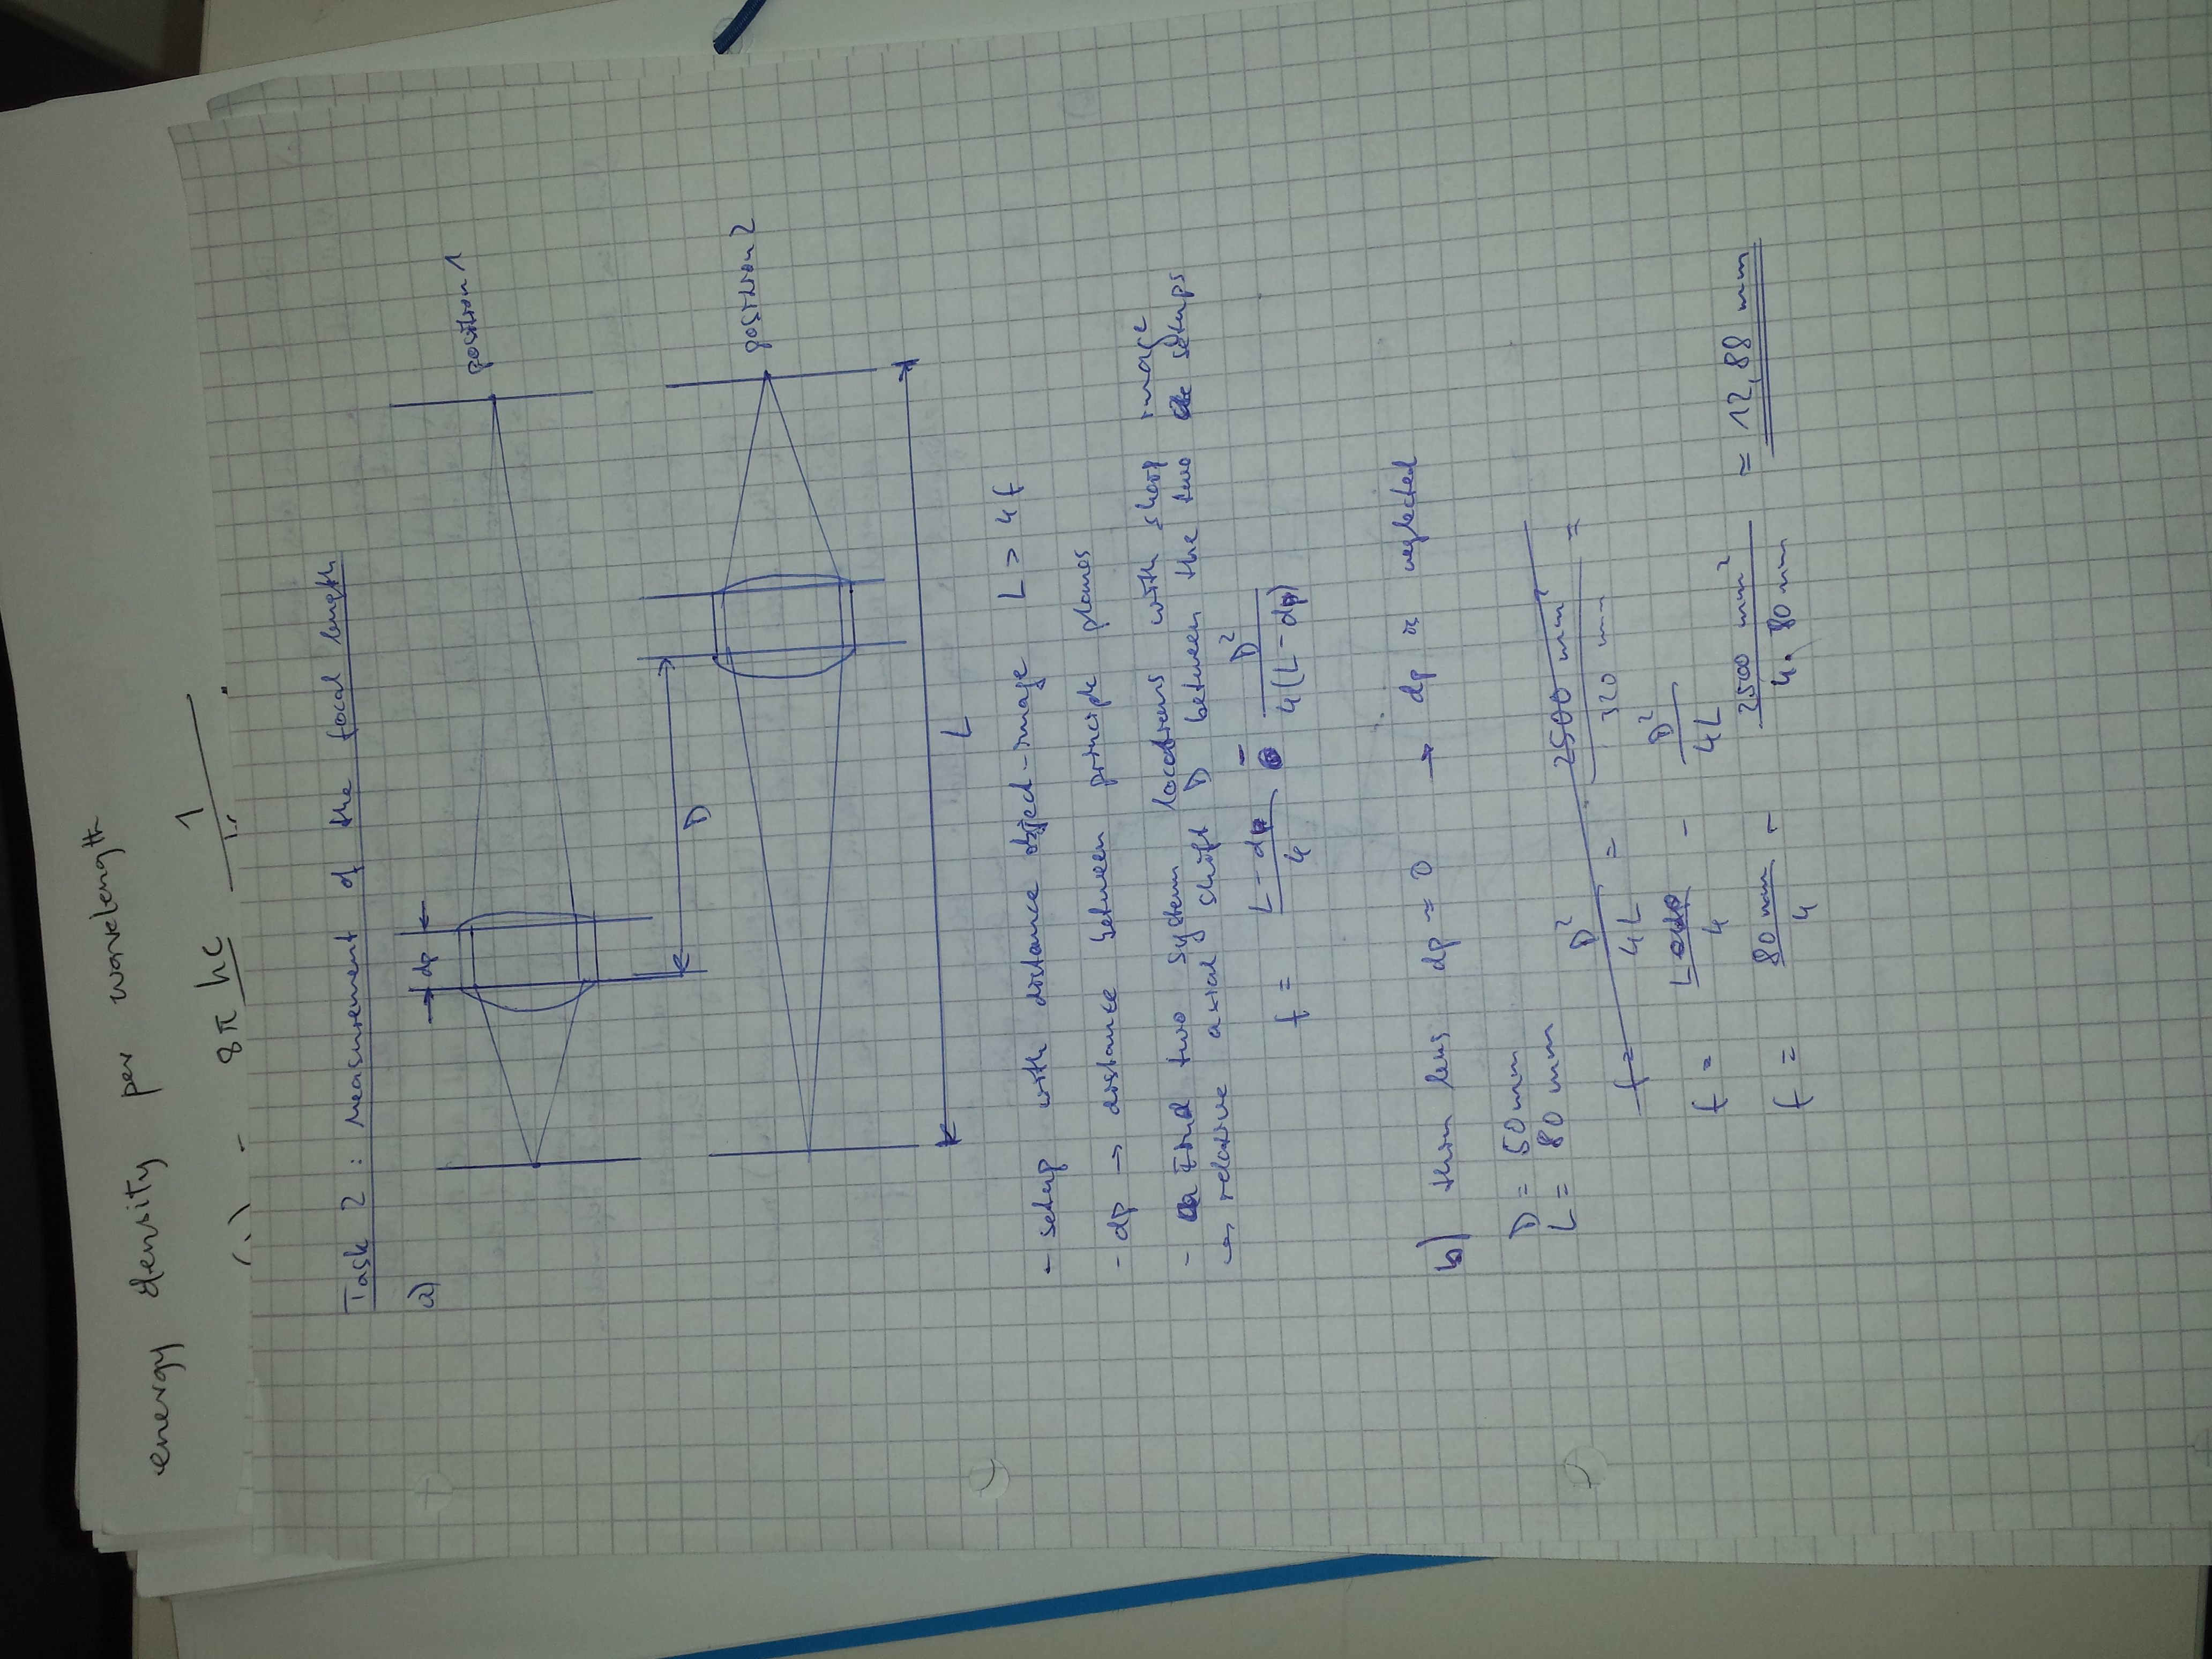 energy density per wavelength
8π hc 1
Task 2 : Measurement of the focal length
a)
dp
position 1
D
position 2
L
- setup with distance object-image L > 4f
- dp → distance between principle planes
- Find two system locations with sharp image
→ relative axial shift D between the two setups
f = (L - dp)/4 - D²/(4(L - dp))
b) thin lens dp ≈ 0 → dp is neglected
D = 50 mm
L = 80 mm
f = D²/4L = 2500 mm²/320 mm =
f = L/4 - D²/4L
f = 80 mm/4 - 2500 mm²/4 · 80 mm = 12,88 mm